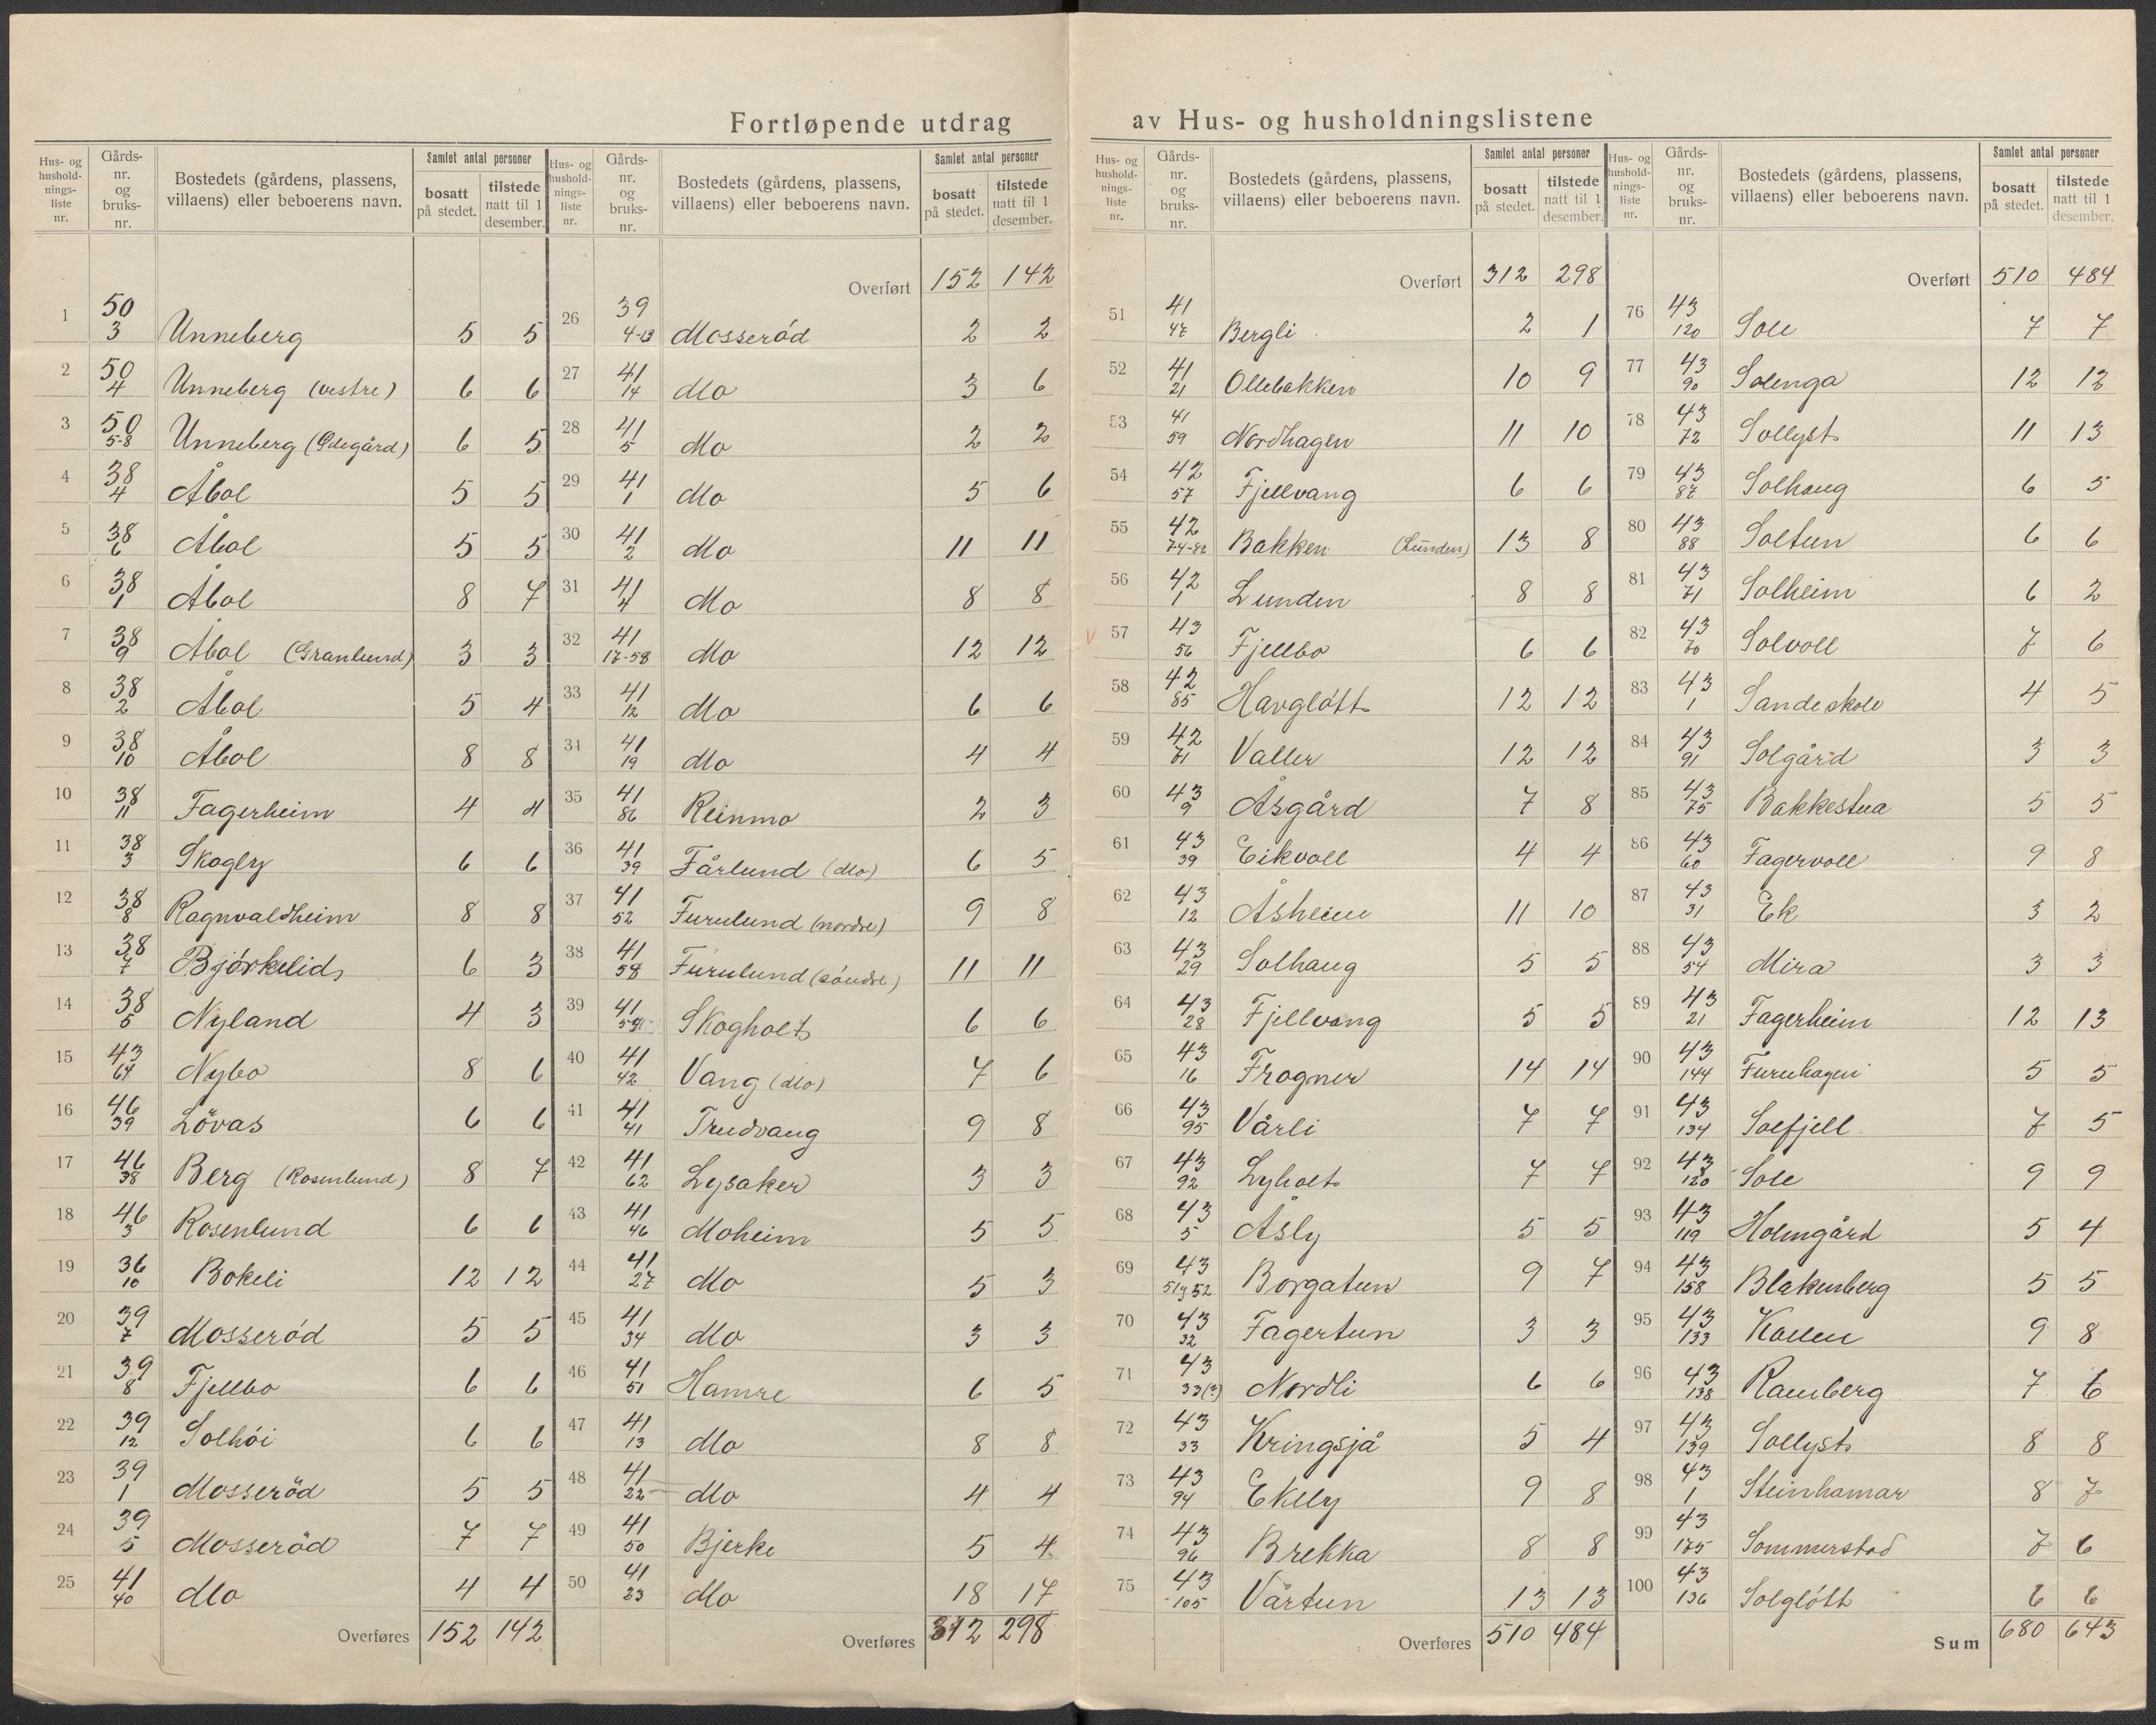 Fortløpende utdrag av Hus- og husholdningslistene
Hus- og husholdningsliste nr. | Gårds- nr. og bruks- nr. | Bostedets (gårdens, plassens, villaens) eller beboerens navn. | Samlet antal personer: bosatt på stedet. | tilstede natt til 1 desember.
1 | 50 3 | Unneberg | 5 | 5
2 | 50 4 | Unneberg (vestre) | 6 | 6
3 | 50 5-8 | Unneberg (Ødegård) | 6 | 5
4 | 38 4 | Åbol | 5 | 5
5 | 38 6 | Åbol | 5 | 5
6 | 38 1 | Åbol | 8 | 7
7 | 38 9 | Åbol (Granlund) | 3 | 3
8 | 38 2 | Åbol | 5 | 4
9 | 38 10 | Åbol | 8 | 8
10 | 38 11 | Fagerheim | 4 | 4
11 | 38 3 | Skogly | 6 | 6
12 | 38 8 | Ragnvaldheim | 8 | 8
13 | 38 7 | Bjørkelid | 6 | 3
14 | 38 5 | Nyland | 4 | 3
15 | 43 64 | Nybo | 8 | 6
16 | 46 39 | Lövas | 6 | 6
17 | 46 38 | Berg (Rosenlund) | 8 | 7
18 | 46 3 | Rosenlund | 6 | 6
19 | 36 10 | Bokeli | 12 | 12
20 | 39 7 | Mosseród | 5 | 5
21 | 39 8 | Fjellbo | 6 | 6
22 | 39 12 | Solhói | 6 | 6
23 | 39 1 | Mosseröd | 5 | 5
24 | 39 5 | Mosseröd | 7 | 7
25 | 41 40 | Mo | 4 | 4
Overføres | 152 | 142
Hus- og husholdningsliste nr. | Gårds- nr. og bruks- nr. | Bostedets (gårdens, plassens, villaens) eller beboerens navn. | Samlet antal personer: bosatt på stedet. | tilstede natt til 1 desember.
Overført | 152 | 142
26 | 39 4-13 | Mosseröd | 2 | 2
27 | 41 14 | Mo | 3 | 6
28 | 41 5 | Mo | 2 | 2
29 | 41 1 | Mo | 5 | 6
30 | 41 2 | Mo | 11 | 11
31 | 41 4 | Mo | 8 | 8
32 | 41 17-58 | Mo | 12 | 12
33 | 41 12 | Mo | 6 | 6
34 | 41 19 | Mo | 4 | 4
35 | 41 86 | Reinmo | 2 | 3
36 | 41 39 | Fårlund (Mo) | 6 | 5
37 | 41 52 | Furulund (nordre) | 9 | 8
38 | 41 58 | Furulund (söndre) | 11 | 11
39 | 41 | Skogholt | 6 | 6
40 | 41 42 | Vang (Mo) | 7 | 6
41 | 41 41 | Trudvang | 9 | 8
42 | 41 62 | Lysaker | 3 | 3
43 | 41 46 | Moheim | 5 | 5
44 | 41 27 | Mo | 5 | 3
45 | 41 34 | Mo | 3 | 3
46 | 41 51 | Hamre | 6 | 5
47 | 41 13 | Mo | 8 | 8
48 | 41 22 | Mo | 4 | 4
49 | 41 50 | Bjerke | 5 | 4
50 | 41 23 | Mo | 18 | 17
Overføres | 312 | 298
Hus- og husholdningsliste nr. | Gårds- nr. og bruks- nr. | Bostedets (gårdens, plassens, villaens) eller beboerens navn. | Samlet antal personer: bosatt på stedet. | tilstede natt til 1 desember.
Overført | 312 | 298
51 | 41 47 | Bergli | 2 | 1
52 | 41 21 | Ollebakken | 10 | 9
53 | 41 59 | Nordhagen | 11 | 10
54 | 42 57 | Fjellvang | 6 | 6
55 | 42 74-82 | Bakken (Lunden) | 13 | 8
56 | 42 1 | Lunden | 8 | 8
57 | 43 56 | Fjellbo | 6 | 6
58 | 42 85 | Havglött | 12 | 12
59 | 42 71 | Valler | 12 | 12
60 | 43 9 | Åsgård | 7 | 8
61 | 43 39 | Eikvoll | 4 | 4
62 | 43 12 | Åsheim | 11 | 10
63 | 43 29 | Solhaug | 5 | 5
64 | 43 28 | Fjellvang | 5 | 5
65 | 43 16 | Frogner | 14 | 14
66 | 43 95 | Vårli | 7 | 7
67 | 43 92 | Lyholt | 7 | 7
68 | 43 5 | Åsly | 5 | 5
69 | 43 51 y 52 | Borgatun | 9 | 7
70 | 43 32 | Fagertun | 3 | 3
71 | 43 33(?) | Nordli | 6 | 6
72 | 43 33 | Kringsjå | 5 | 4
73 | 43 94 | Ekely | 9 | 8
74 | 43 96 | Brekka | 8 | 8
75 | 43 105 | Vårtun | 13 | 13
Overføres | 510 | 484
Hus- og husholdningsliste nr. | Gårds- nr. og bruks- nr. | Bostedets (gårdens, plassens, villaens) eller beboerens navn. | Samlet antal personer: bosatt på stedet. | tilstede natt til 1 desember.
Overført | 510 | 484
76 | 43 120 | Sole | 7 | 7
77 | 43 90 | Solenga | 12 | 12
78 | 43 72 | Sollyst | 11 | 13
79 | 43 87 | Solhaug | 6 | 5
80 | 43 88 | Soltun | 6 | 6
81 | 43 71 | Solheim | 6 | 2
82 | 43 70 | Solvoll | 7 | 6
83 | 43 1 | Sande skole | 4 | 5
84 | 43 91 | Solgård | 3 | 3
85 | 43 75 | Bakkestua | 5 | 5
86 | 43 60 | Fagervoll | 9 | 8
87 | 43 31 | Ek | 3 | 2
88 | 43 54 | Mira | 3 | 3
89 | 43 21 | Fagerheim | 12 | 13
90 | 43 144 | Furuhagen | 5 | 5
91 | 43 134 | Solfjell | 7 | 5
92 | 43 120 | Sole | 9 | 9
93 | 43 119 | Holmgård | 5 | 4
94 | 43 158 | Blakenberg | 5 | 5
95 | 43 133 | Kollen | 9 | 8
96 | 43 138 | Ramberg | 7 | 6
97 | 43 139 | Sollyst | 8 | 8
98 | 43 1 | Steinhamar | 8 | 7
99 | 43 175 | Sommerstad | 7 | 6
100 | 43 136 | Solglött | 6 | 6
Sum | 680 | 643